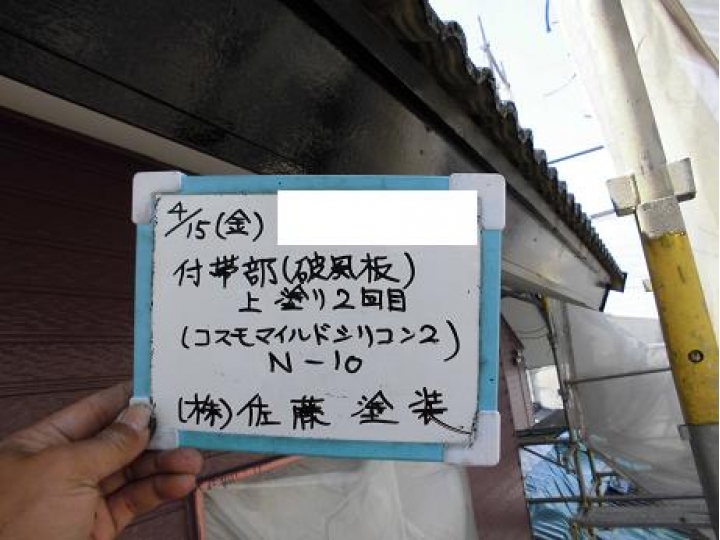 4/15(金)
付帯部(破風板)
上塗り2回目
(コスモマイルドシリコン2)
N-10
(株)佐藤塗装